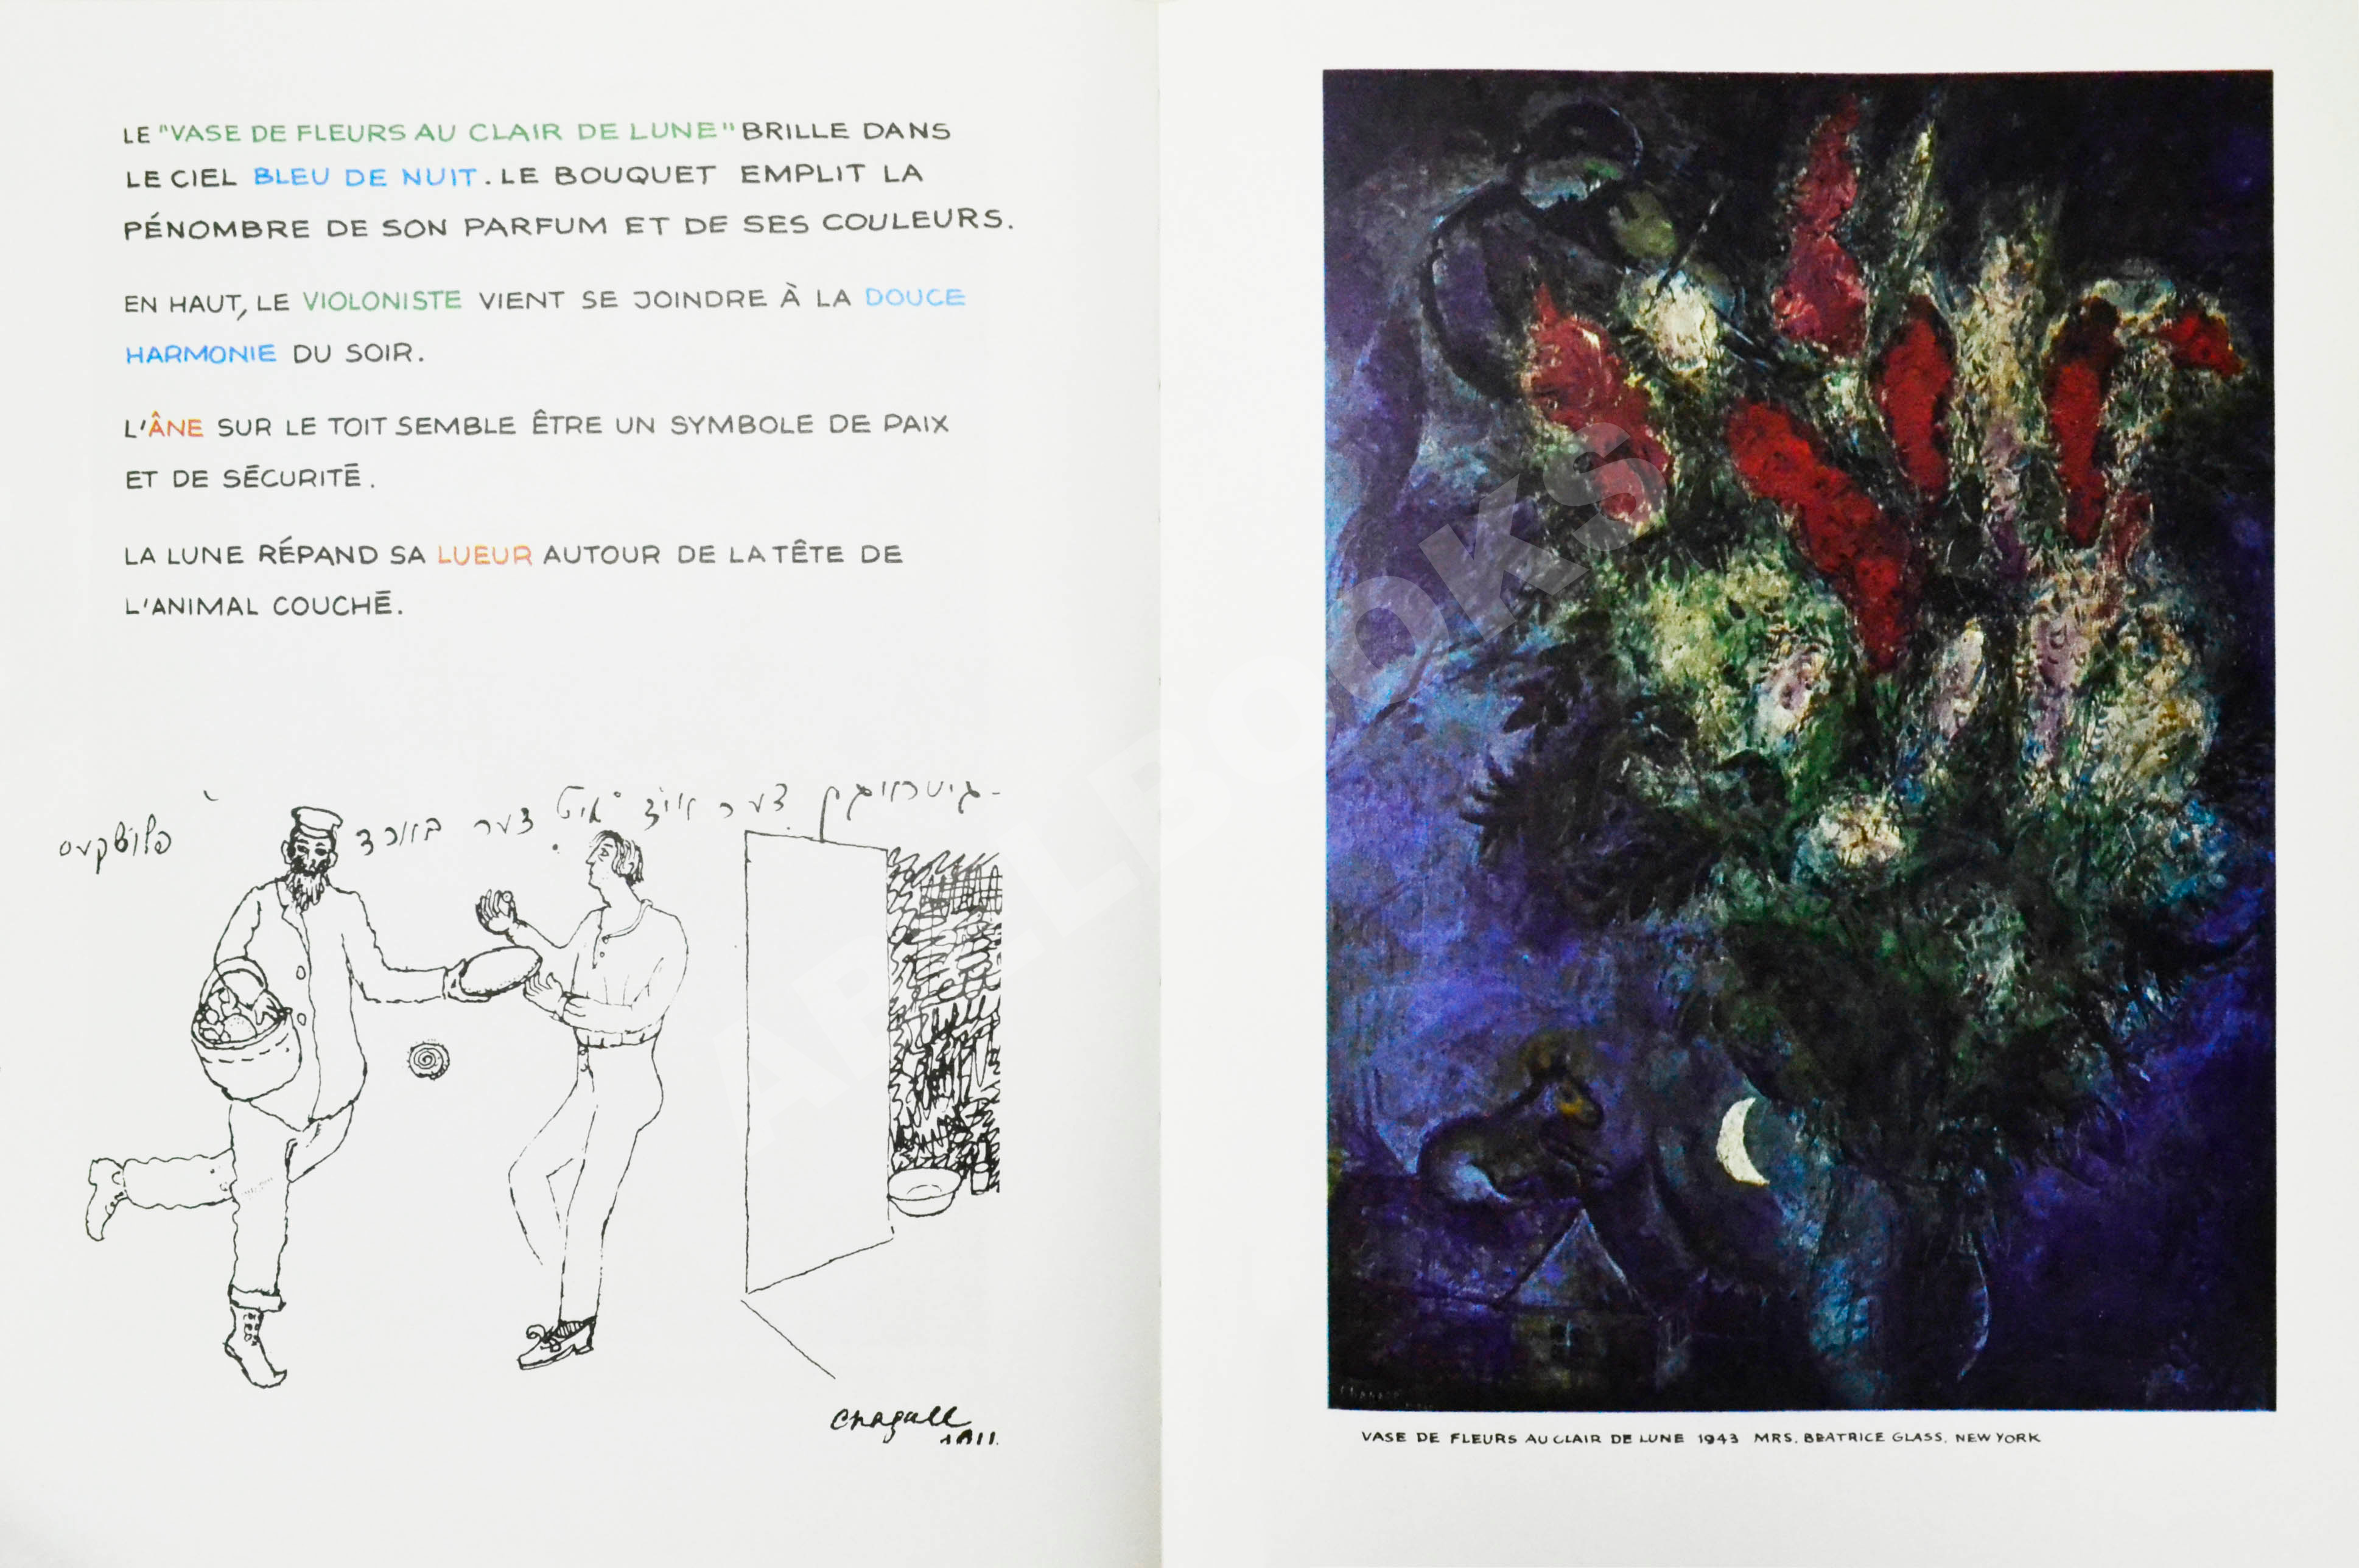 LE "VASE DE FLEURS AU CLAIR DE LUNE" BRILLE DANS
LE CIEL BLEU DE NUIT. LE BOUQUET EMPLIT LA
PÉNOMBRE DE SON PARFUM ET DE SES COULEURS.
EN HAUT, LE VIOLONISTE VIENT SE JOINDRE À LA DOUCE
HARMONIE DU SOIR.
L'ÂNE SUR LE TOIT SEMBLE ÊTRE UN SYMBOLE DE PAIX
ET DE SÉCURITÉ.
LA LUNE RÉPAND SA LUEUR AUTOUR DE LA TÊTE DE
L'ANIMAL COUCHÉ.
Chagall
1911.
VASE DE FLEURS AU CLAIR DE LUNE 1943 MRS. BEATRICE GLASS, NEW YORK